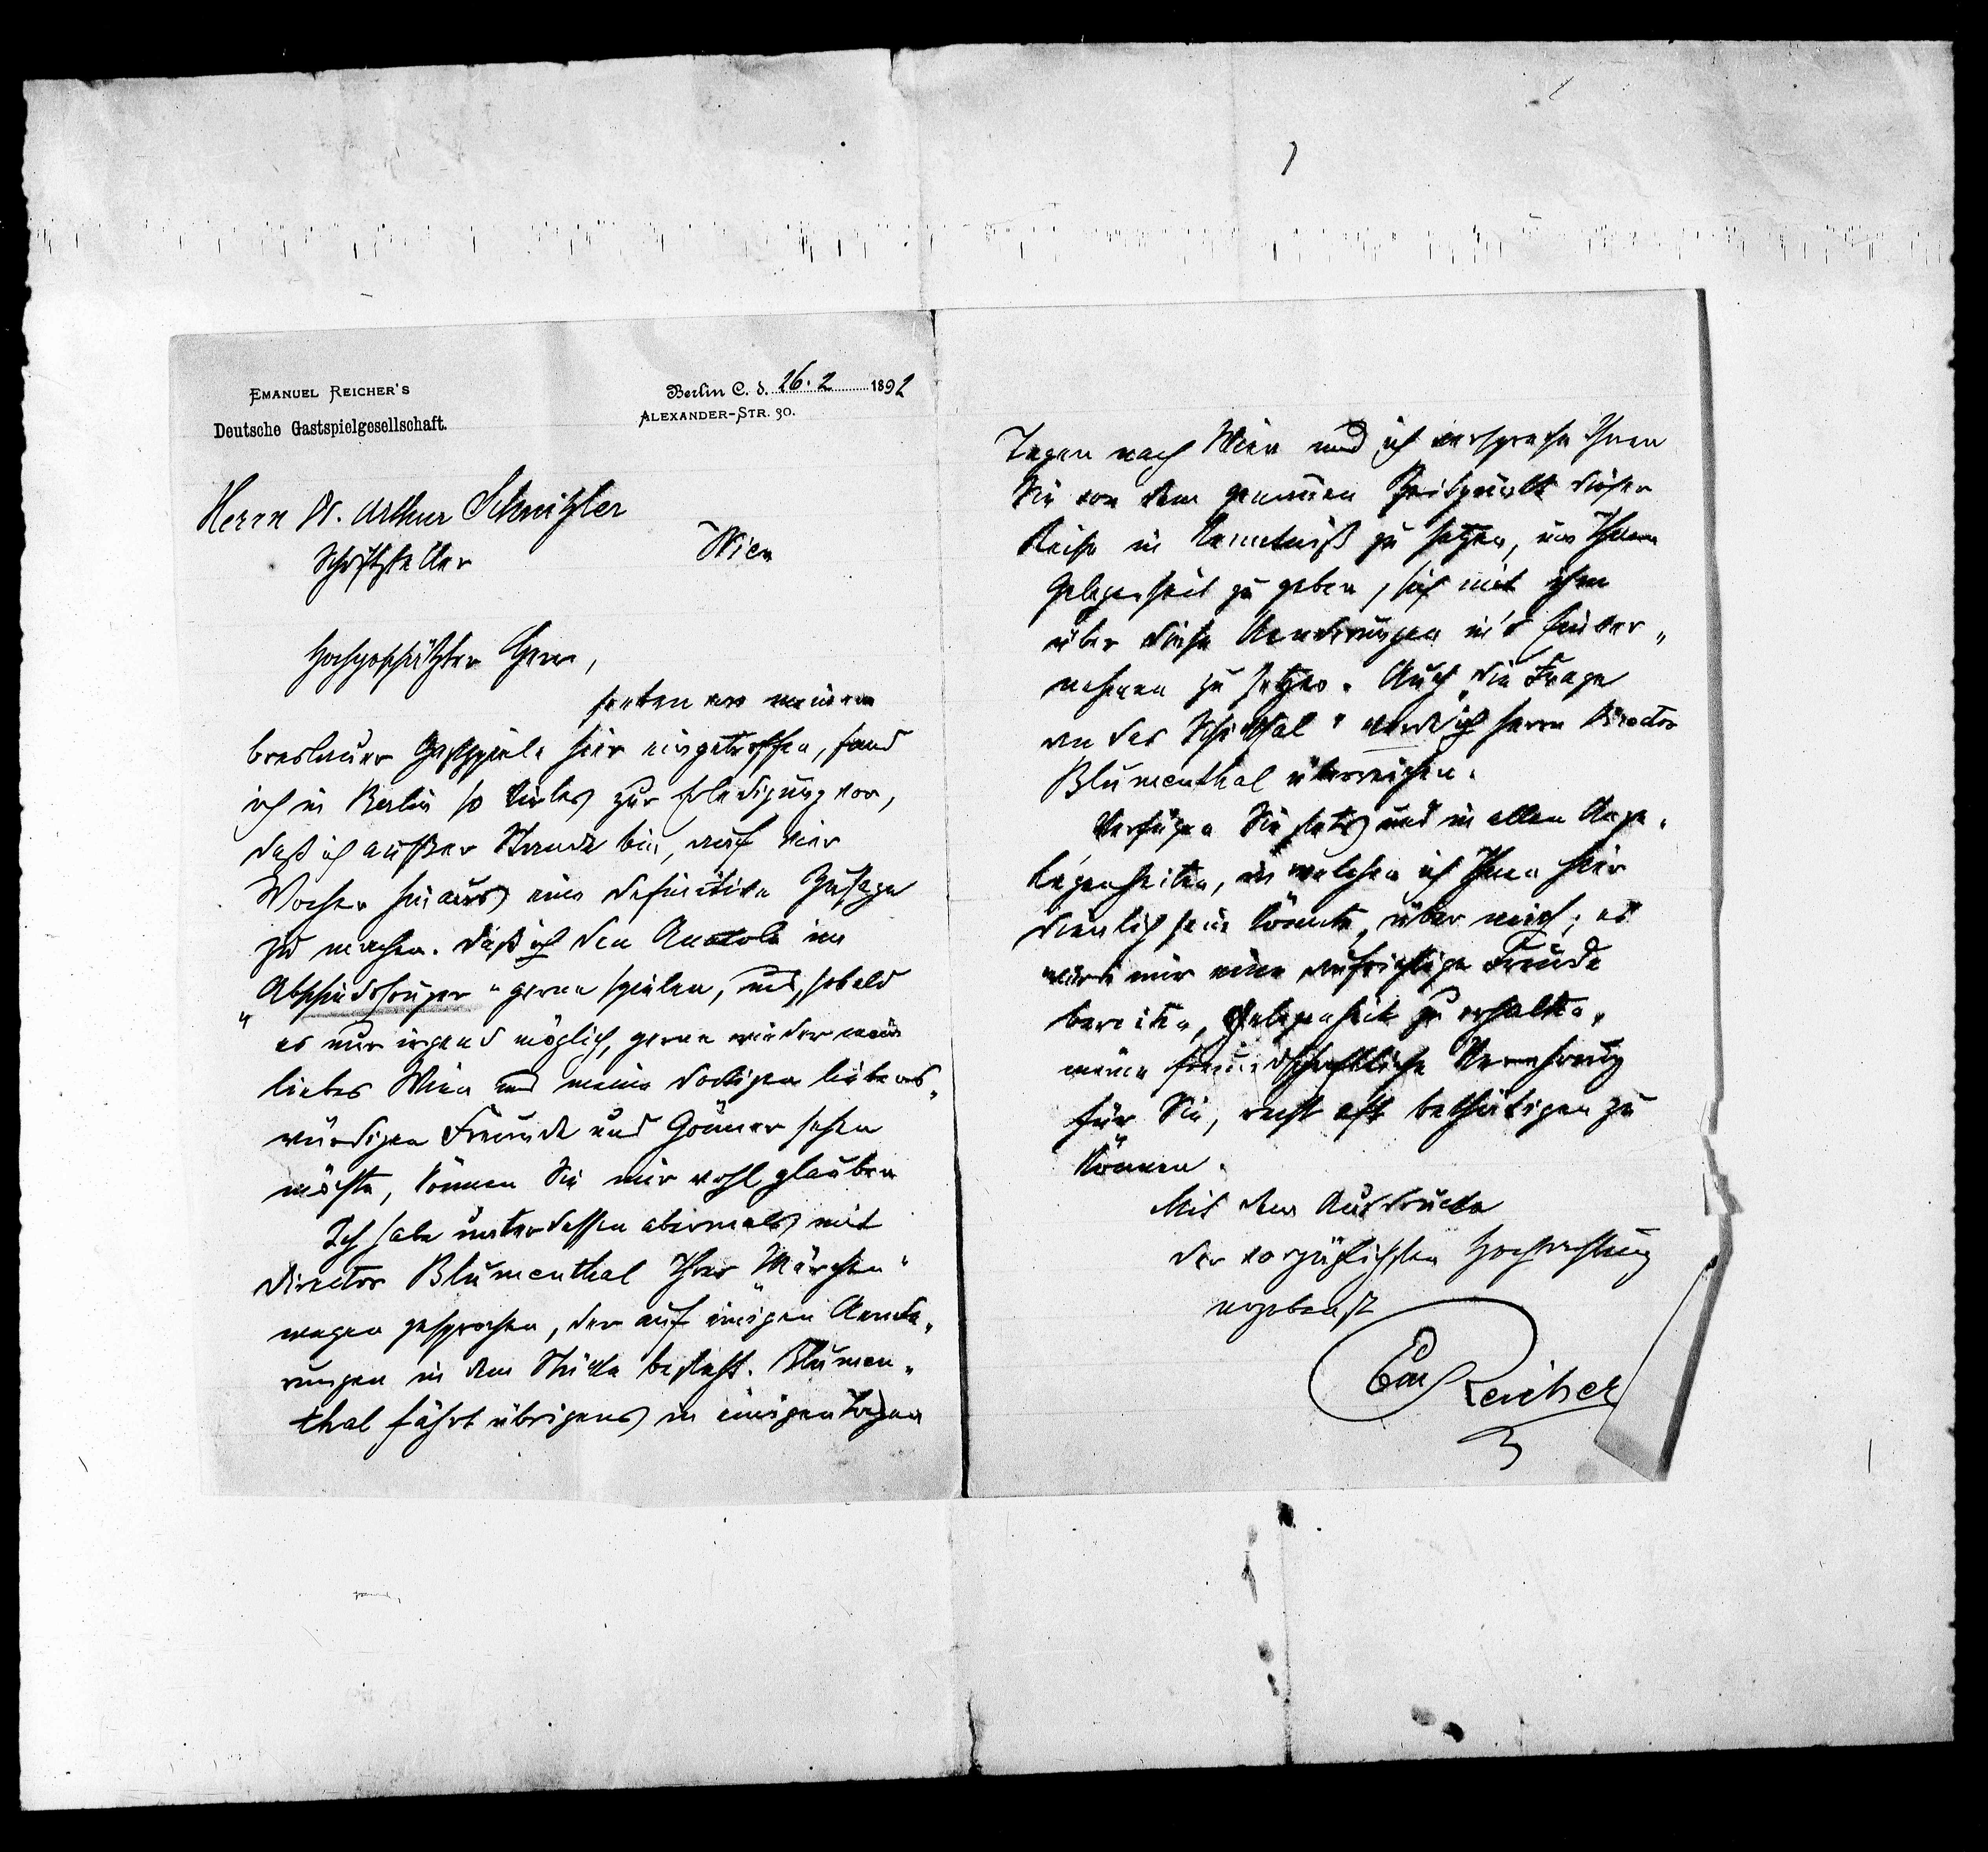 EMANUEL REICHER'S
Deutsche Gastspielgesellschaft.
Berlin C. d. 26. 2 1892
ALEXANDER-STR. 30.
Herrn Dr. Arthur Schnitzler
Schriftsteller
Wien
Hochgeschätzter Herr,
soeben von meinem
breslauer Gastspiele hier eingetroffen, fand
ich in Berlin so Vieles zur Erledigung vor,
daß ich außer Stande bin, auf vier
Wochen hinaus eine definitive Zusage
zu machen. Daß ich den Anatole im
„Abschiedssouper“ gerne spielen, und, sobald
es nur irgend möglich, gerne wieder mein
liebes Wien und meine dortigen liebens„
würdigen Freunde und Gönner sehen
möchte, können Sie mir wohl glauben
Ich habe unterdessen abermals mit
Director Blumenthal Ihres „Märchen“
wegen gesprochen, der auf einigen Aende„
rungen in dem Stücke besteht. Blumen„
thal fährt übrigens in einigen Tagen
Tagen nach Wien und ich verspreche Ihnen
Sie von dem genauen Zeitpunkt dieser
Reise in Kenntniß zu setzen, um Ihnen
Gelegenheit zu geben, sich mit ihm
über diese Aenderungen in's Einver„
nehmen zu setzen. Auch „die Frage
an das Schicksal“ werde ich Herrn Director
Blumenthal überreichen.
Verfügen Sie stets und in allen Ange„
legenheiten, in welchen ich Ihnen hier
dienlich sein könnte, über mich; es
wird mir eine aufrichtige Freude
bereiten, Gelegenheit zu erhalten,
meine freundschaftliche Verehrung
für Sie, recht oft bethätigen zu
können.
Mit dem Ausdrucke
der vorzüglichsten Hochachtung
ergebenst
Em Reicher